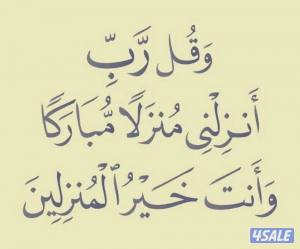 وَقُل رَّبِّ
أَنزِلْنِى مُنزَلًا مُّبَارَكًا
وَأَنتَ خَيْرُ ٱلْمُنزِلِينَ
4SALE